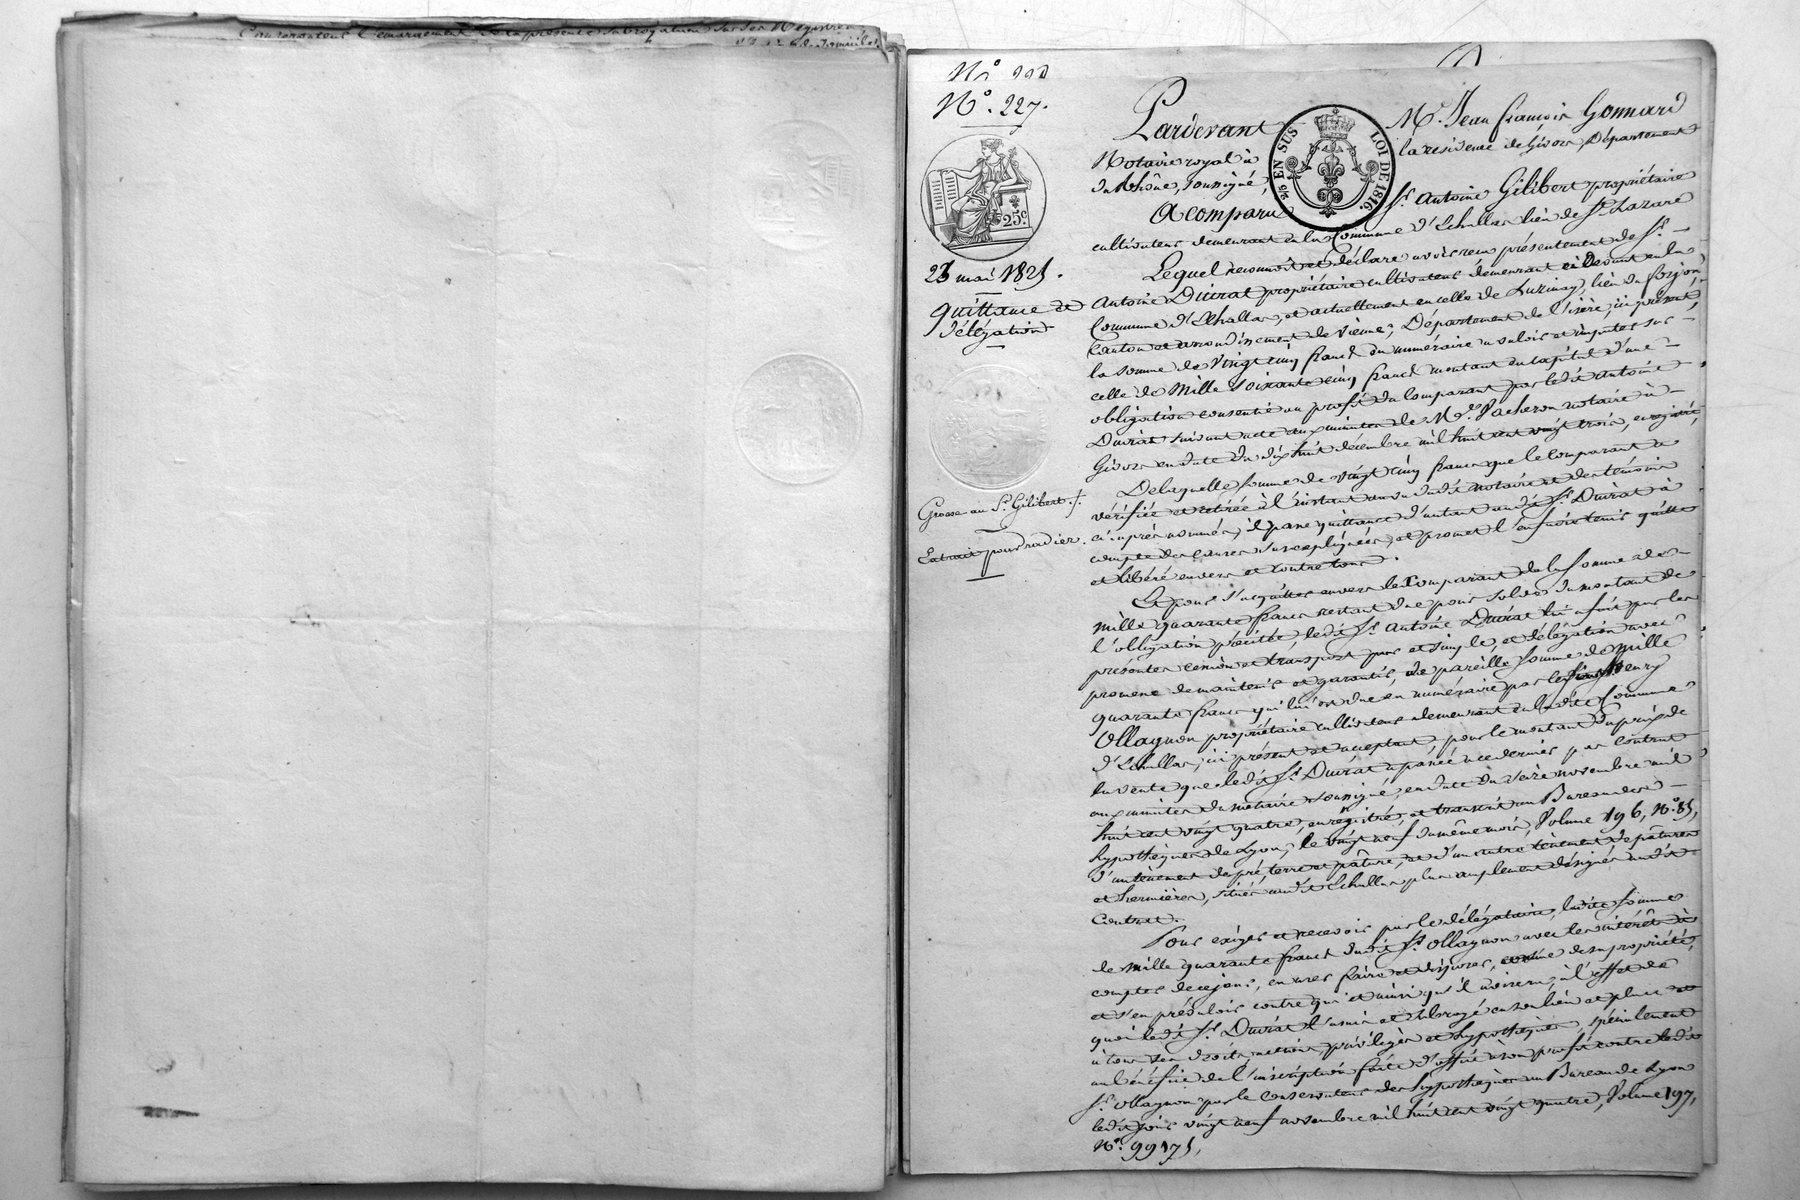 Conservateur l'émargement de la présente subrogation sur ses Registres
et de domicile
N.°
N.° 227.
25 c.
23 mai 1825.
quittance et
délégation
Grosse au S.r Gilibert.
Extrait pour radier.
2/5 EN SUS LOI DE 1816.
Pardevant M.e Jean françois Gonnard
Notaire royal à la résidence de Givors, Département
du Rhône, soussigné,
A comparu S.r Antoine Gilibert propriétaire
cultivateur demeurant en la Commune d'Echallas lieu de S.t Lazare
Lequel reconnoit et déclare avoir reçu présentement de S.r
Antoine Duivat propriétaire cultivateur demeurant ci Devant en la
Commune d'Echallas, et actuellement en celle de Luzinay, lieu du
Canton et arrondissement de Vienne, Département de l'isère, ici présent,
la somme de Vingt cinq francs en numéraire à valoir et imputer sur
celle de Mille soixante cinq francs montant en capital d'une
obligation consentie au profit du comparant par ledit Antoine
Duivat suivant acte aux minutes de M.e Vacheron notaire à
Givors en date du dix huit décembre mil huit cent vingt trois, enregistré,
De laquelle somme de vingt cinq francs que le comparant a
vérifiée et retirée à l'instant au vu dudit notaire et des témoins
ci après nommés, il passe quittance d'autant audit S.r Duivat à
compte des causes sus expliquées, et promet l'en faire tenir quitte
et libéré envers et contre tous.
Et pour s'acquitter envers le comparant de la somme de
mille quarante francs restant due pour solde du montant de
l'obligation précitée, ledit S.r Antoine Duivat lui a fait par les
présentes cession et transport pur et simple, et délégation avec
promesse de maintenir et garantir, de pareille somme de mille
quarante francs qui lui est due en numéraire par le sieur henry
Ollagnon propriétaire cultivateur demeurant en ladite Commune
d'Echallas, ici présent et acceptant, pour le montant du prix de
la vente que ledit S.r Duivat a passée à ce dernier par contrat
aux minutes du notaire soussigné, en date du seize novembre mil
huit cent vingt quatre, enregistré, et transcrit au Bureau des
hypothèques de Lyon, le vingt neuf du même mois, Volume 196, N.° 85,
d'un tènement de pré, terre et pâture, et d'un autre tènement de pâtures
et hermières, situés audit Echallas plus amplement désignés audit
Contrat.
Pour exiger et recevoir par le délégataire, ladite somme
de mille quarante francs dudit S.r Ollagnon avec les intérêts à
compter de ce jour, en user faire et disposer, comme de sa propriété,
et s'en prévaloir contre qui et ainsi qu'il avisera; à l'effet de
quoi ledit S.r Duivat l'a mis et subrogé en son lieu et place et
à tous ses droits, actions, privilèges et hypothèques, spécialement
au bénéfice de l'inscription faite d'office à son profit contre ledit
S.r Ollagnon par le Conservateur des hypothèques au Bureau de Lyon
ledit jour vingt neuf novembre mil huit cent vingt quatre, Volume 197,
N.° 99175,